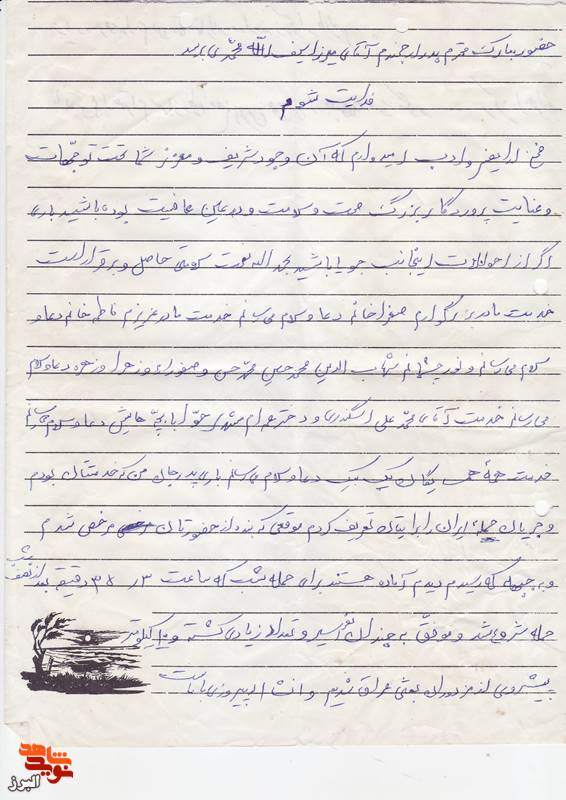 حضور مبارک محترم پدر ارجمندم آقای میرزا سیف الله محمدی برسد
فدایت شوم
ضمن عرایض و ادب امیدوارم که آن وجود شریف و معزز شما تحت توجهات
و عنایت پروردگار بزرگ صحت و سلامت و در عین عافیت بوده باشید باری
اگر از احوالات اینجانب جویا باشید بحمد الله صحت سلامتی حاصل و برقرار است
خدمت مادر بزرگوارم صغرا خانم دعا و سلام می‌رسانم خدمت مادر عزیزم فاطمه خانم دعا و
سلام می‌رسانم و نور چشمانم شهاب الدین محمد حسین محمد حسن و صفورا و زهرا و زهره دعا و سلام
می‌رسانم خدمت آقای محمد علی اسکندری و دختر عمه‌ام مشهدی حوا با بچه‌هایش دعا و سلام می‌رسانم
خدمت همهٔ همسایگان یک یک دعا و سلام می‌رسانم باری پدر جان من که خدمتتان بودم
و جریان حمله ایران را برایتان تعریف کردم موقعی که بنده از حضورتان مرخص شدم
و به جبهه که رسیدم دیدم آماده هستند برای حمله شب که ساعت ۳ر ۳۸ دقیقه بعد از نصف شب
حمله شروع شد و موفق به چندان اسیر و تعداد زیادی کشته و ۱۰ کیلومتر
پیشروی از مزدوران بعثی عراق شدیم و انشا ا پیروزی با ماست
شاهد
نوید
البرز